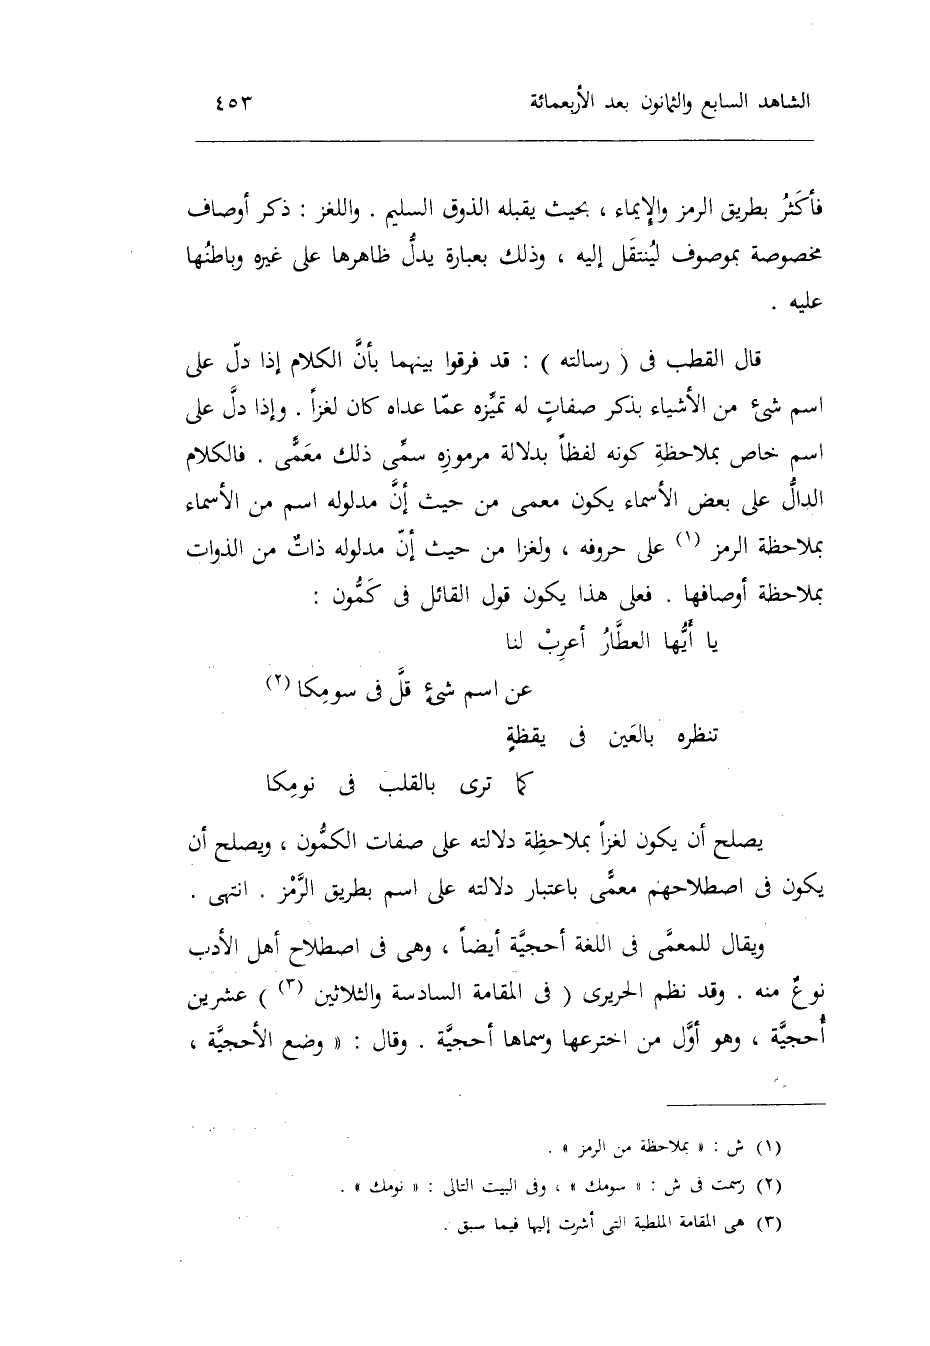 الشاهد السابع والثمانون بعد الأربعمائة ٤٥٣
فأكثَرُ بطريق الرمز والإيماء ، بحيث يقبله الذوق السليم . واللغز : ذكر أوصاف
مخصوصة بموصوف ليُنتقَل إليه ، وذلك بعبارة يدلُّ ظاهرها على غيره وباطنُها
عليه .
قال القطب فى ( رسالته ) : قد فرقوا بينهما بأنَّ الكلام إذا دلّ على
اسم شئ من الأشياء بذكر صفاتٍ له تميِّزه عمّا عداه كان لغزاً . وإذا دلَّ على
اسم خاص بملاحظةِ كونه لفظاً بدلالة مرموزِه سمِّى ذلك معَمًّى . فالكلام
الدالُّ على بعض الأسماء يكون معمى من حيث إنَّ مدلوله اسم من الأسماء
بملاحظة الرمز (١) على حروفه ، ولغزا من حيث إنّ مدلوله ذاتٌ من الذوات
بملاحظة أوصافها . فعلى هذا يكون قول القائل فى كَمُّون :
يا أيُّها العطَّارُ أعرِبْ لنا
عن اسم شئٍ قلَّ فى سومِكا (٢)
تنظره بالعَين فى يقظةٍ
كما ترى بالقلب فى نومِكا
يصلح أن يكون لغزاً بملاحظِة دلالته على صفات الكمُّون ، ويصلح أن
يكون فى اصطلاحهم معمًّى باعتبار دلالته على اسم بطريق الرَّمْز . انتهى .
ويقال للمعمَّى فى اللغة أحجيَّة أيضاً ، وهى فى اصطلاح أهل الأدب
نوعٌ منه . وقد نظم الحريرى ( فى المقامة السادسة والثلاثين (٣) ) عشرين
أُحجيَّة ، وهو أوَّل من اخترعها وسماها أحجيَّة . وقال : « وضع الأحجيَّة ،
(١) ش : « بملاحظة من الرمز » .
(٢) رسمت فى ش : « سومك » ، وفى البيت التالى : « نومك » .
(٣) هى المقامة الملطية التى أشرت إليها فيما سبق .